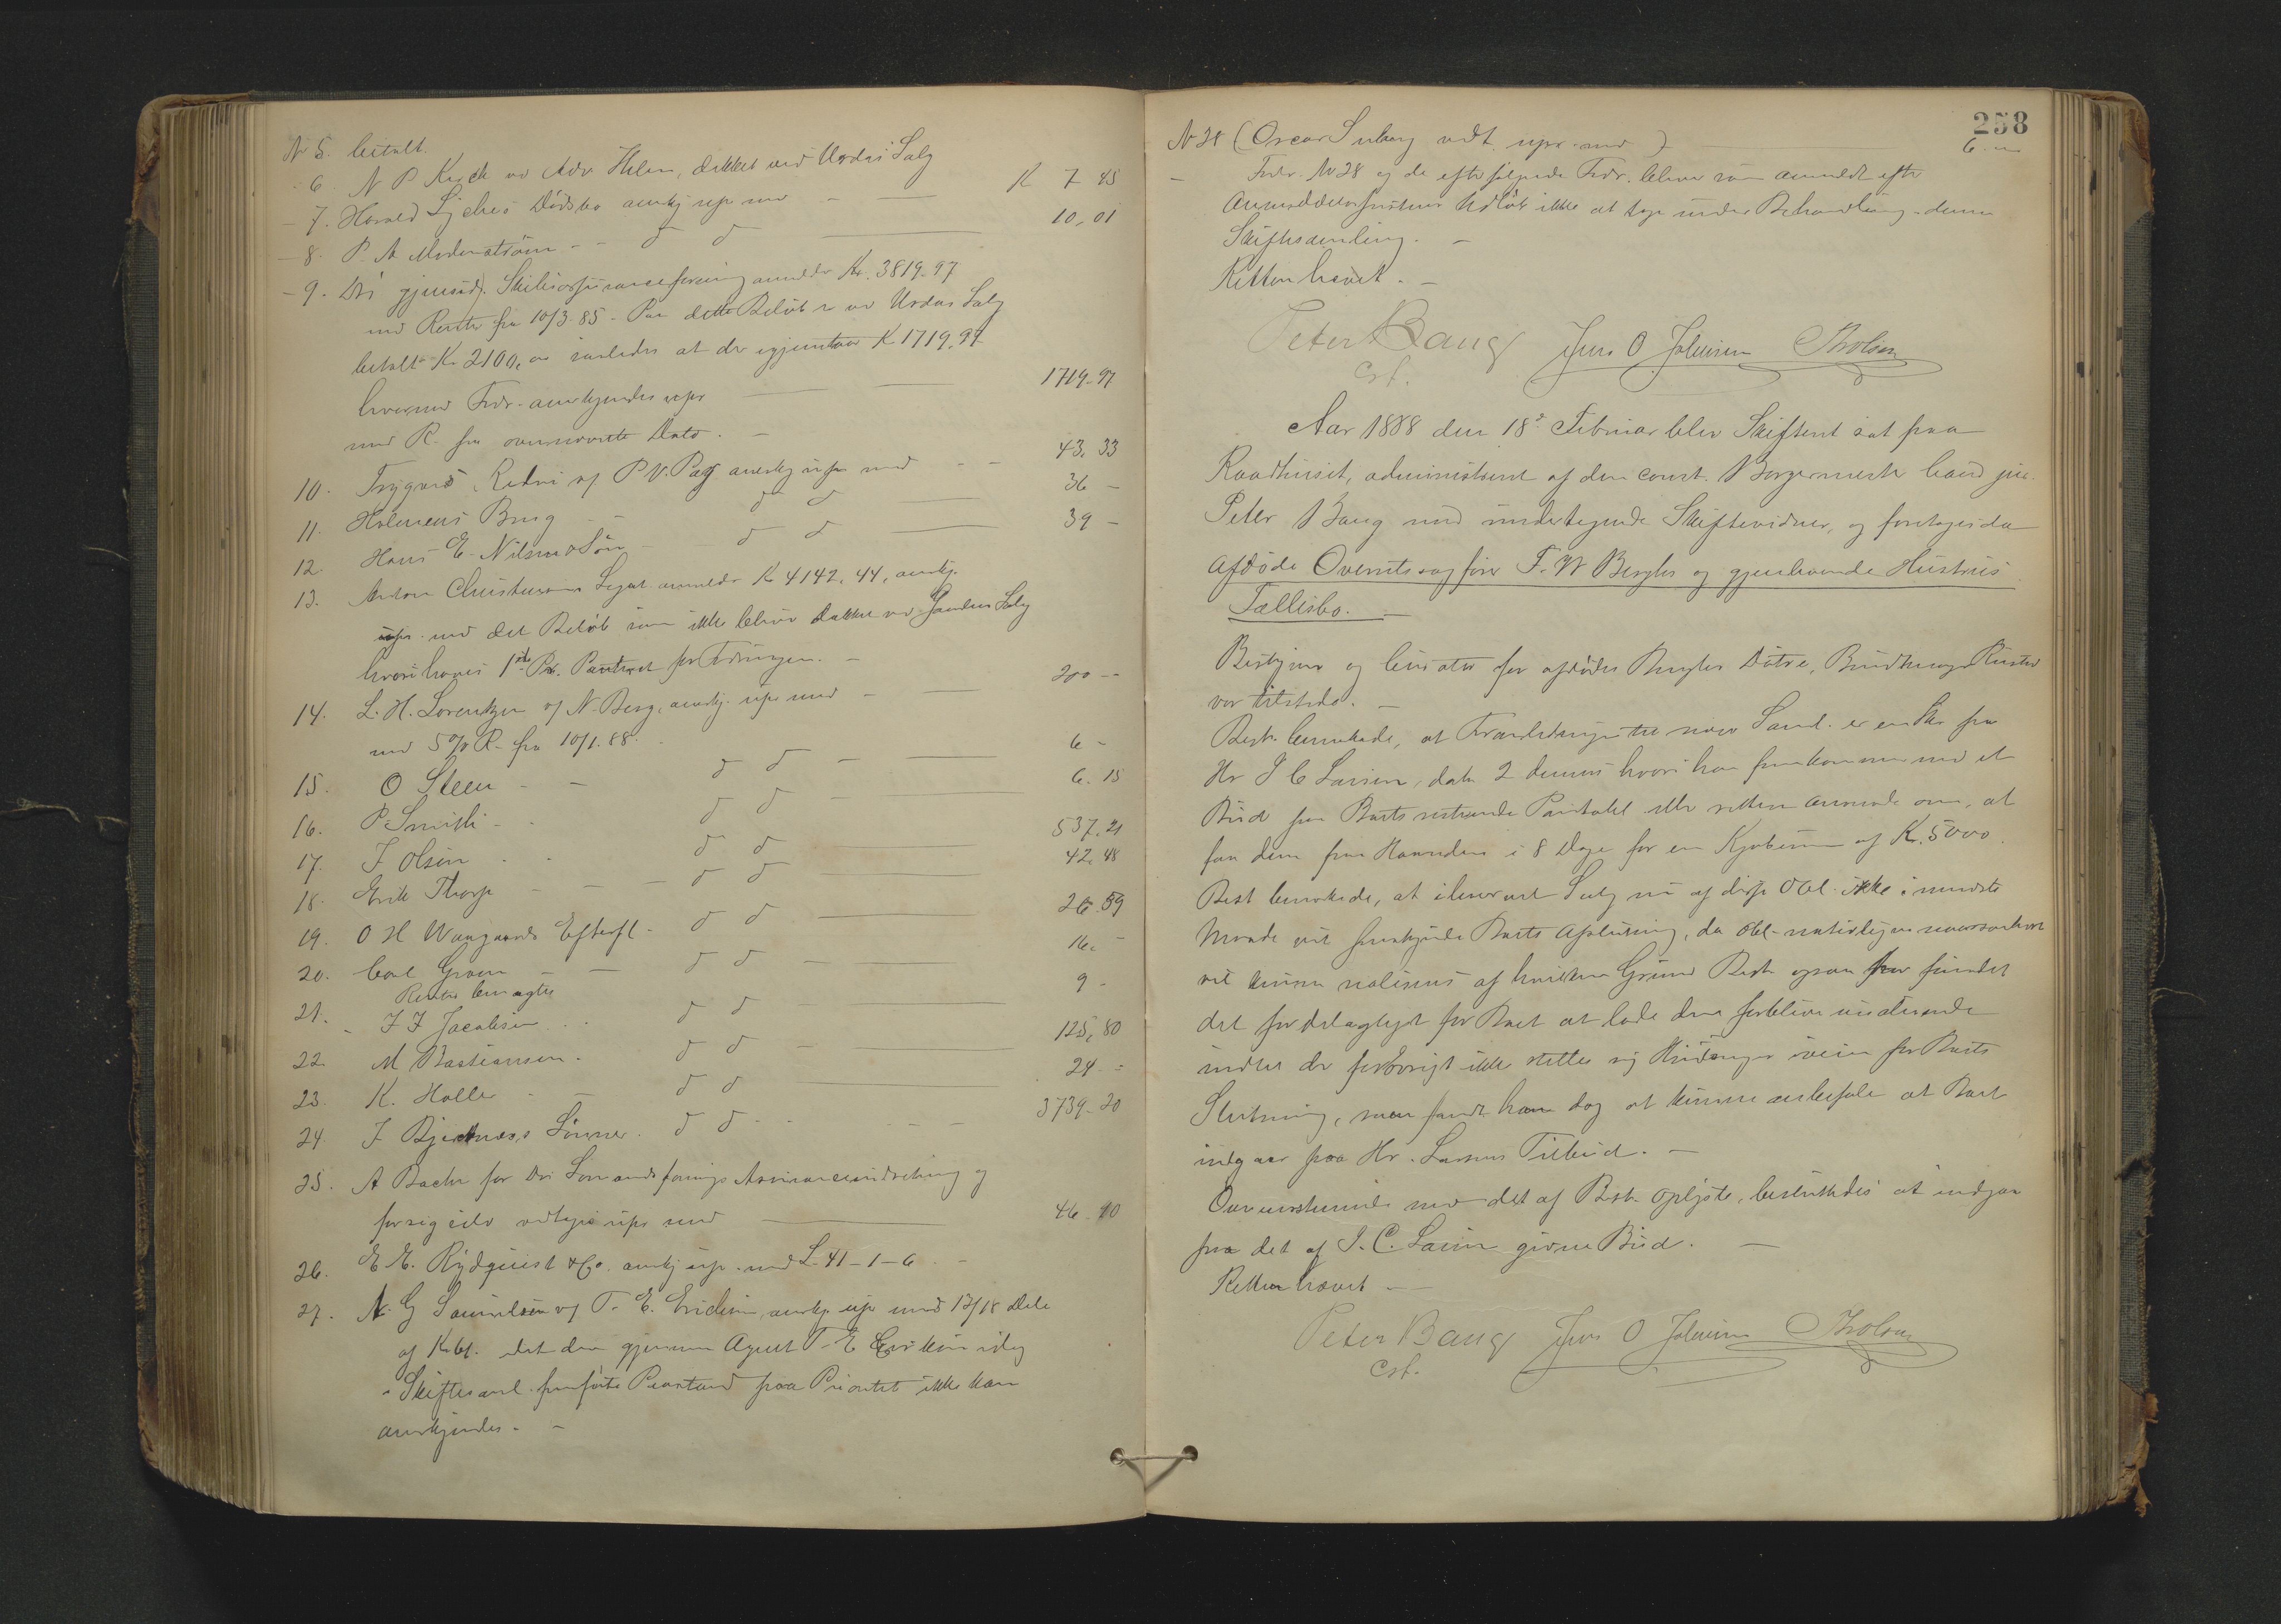 N 5. betalt.
6. N P Kirch ved Adv Helm, dækket ved Urdas Salg
- 7. Harald Lyches Dødsbo anerkj upr med - — K 7 45
- 8. P. A. Morenström - - d d — 10,01
- 9. Den gjensid. Skibsassuranceforening anmeldt Kr. 3819.97
med Renter fra 10/3 85 - Paa dette Beløb er ved Urdas Salg
betalt K. 2100, saaledes at der igjenstaar K 1719.97
hvormed Fordr. anerkjendes upr — 1719.97
med R. fra ovennævnte Dato. -
10. Trygves Rederi v/ P V. anerkj upr med - - 43,33
11. Holmens Brug - - d d — 36 -
12. Hans E. Nilsen & Søn - d d — 39 -
13. Anton Christensens Legat anmeldt Kr 4142,44, anerkj.
upr. med det Beløb som ikke bliver dækket ved Salg
hvori haves 1ste Pr. Panteret for Fordringen. -
14. L. H. Lorentzen v/ N. Berg, anerkj. upr med - — 200 --
med 5% R. fra 10/1.88.
15. O Steen - - d d - — 6 -
16. P. Smith - - d d — 6.15
17. J Olsen - - d d — 537,21
18. Erik Thorp - - - d d — 42,48
19. O H Waagaards Efterfl - d d — 26.59
20. Carl Gran - — d d - — 16. -
Renter
21. J J Jacobsen . . d d - — 9 -
22. M Bastiansen - d d - — 125,80
23. K. Holler - - d d — 24 - -
24. J Bjerknæs's Sønner. d d - - 3739.20
25. A Bache for Den Sømandsforenings Assuranceindretning og
for sig selv vedtages upr med — 46.90
26. E. Rydquist & Co. anerkj upr. med £ 41-1-6
27. N. G Samuelsen v/ T. E. Erichsen, anerkj upr med 13/18 Dele
af K 61. idet den gjennem Agent T. E Eriksen idag
i Skiftesaml. fremførte Paastand paa Prioritet ikke kan
anerkjendes. -
258
N 28 (Oscar vedt. upr. med ) — 6. -
- Fordr. No 28 og de efterfølgende Fordr. bliver som anmeldt efter
Anmeldelsesfristens Udløb ikke at tage under Behandling i denne
Skiftesamling. -
Retten hævet. -
Peter Bang Jens O Johnsen Tholsen
cst.
Aar 1888 den 18de Februar blev Skifteret sat paa
Raadhuset, administreret af den const. Borgermester cand jur.
Peter Bang med undertegnede Skiftevidner, og foretoges da
afdøde Overretssagfører F. W Bergh's og gjenlevende Hustrus
Fællesbo. -
Bestyrer og curator for afdødes Døtre, Rustad
var tilstede. -
Best. bemærkede, at Foranledningen til nærv Saml. er en Skr fra
Hr J C Larsen, dat. 2 dennes hvori han fremkommer med et
Bud paa Boets
faa dem paa Haanden i 8 Dage for en Kjøbesum af Kr. 5000.
Best bemærkede, at ethvert Salg nu af disse Obl. ikke i mindste
Maade vil fremskynde Boets Afslutning, da Obl. naturligvis
vil kunne realiseres af hvilken Grund Best. ogsaa har fundet
det fordelagtigst for Boet at lade dem forblive
indtil der forøvrigt ikke stiller sig Hindringer iveien for Boets
Slutning, men fandt han dog at kunne anbefale at Boet
indgaar paa Hr. Larsens Tilbud. -
Overensstemmende med det af Best. oplyste, besluttedes at indgaa
paa det af J. C. Larsen givne Bud. -
Retten hævet -
Peter Bang Jens O Johnsen Tholsen
cst.